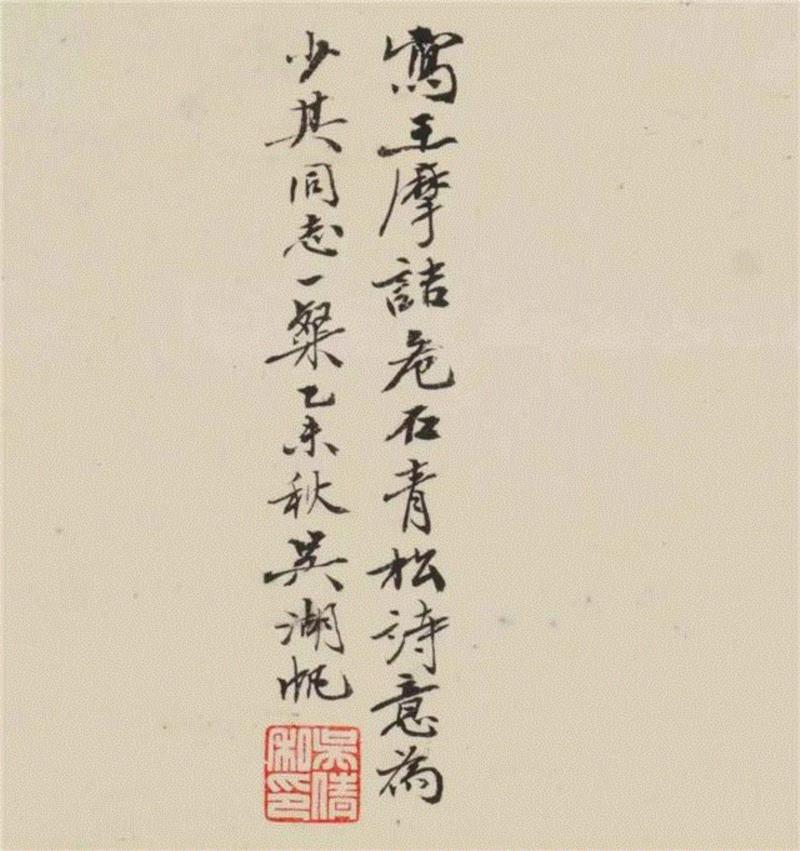 寫王摩詰危石青松詩意為
少其同志一粲乙未秋吳湖帆
吳倩私印